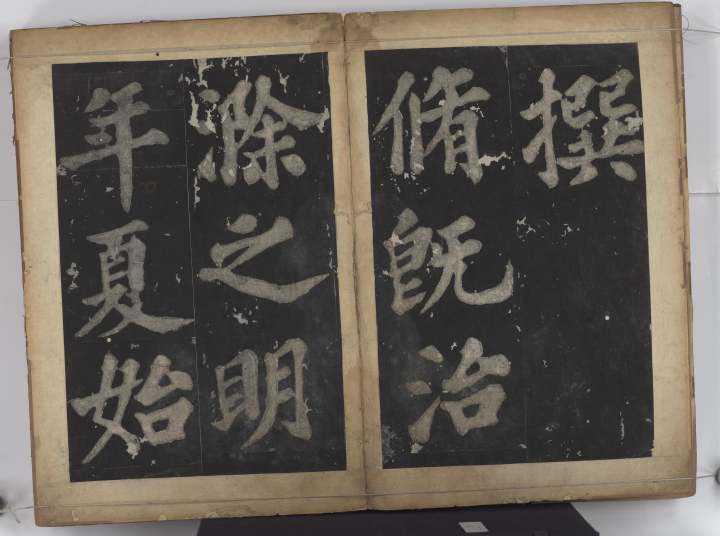 撰
脩既治
滁之明
年夏始